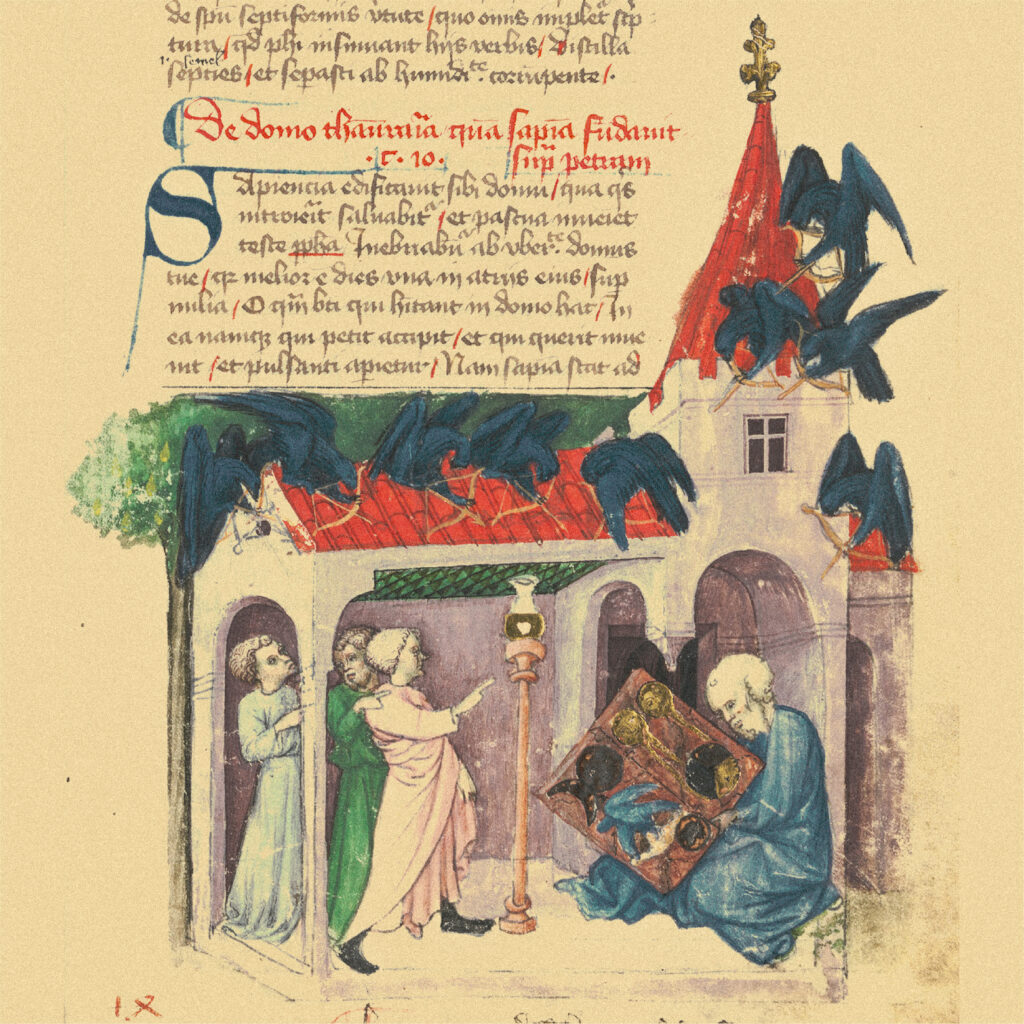 de spm septiformis vtute / quo omis implet scp
tura / qd phi insinuant hijs verbis / Distilla
semel
septies / et sepasti ab humidi te corrumpente /.
De domo thauraria qua sapia fudauit
.C. 10. sup petram
Sapiencia edificauit sibi domu / qua qs
introierit saluabit / et pascua inueiet
teste ppha Inebriabu ab vber te domus
tue / qr melior e dies vna in atriis eius / sup
milia / O qm bti qui hitant in domo hac / In
ea namq qui petit accipit / et qui querit inue
nit / et pulsanti aperietur / Nam sapia stat ad